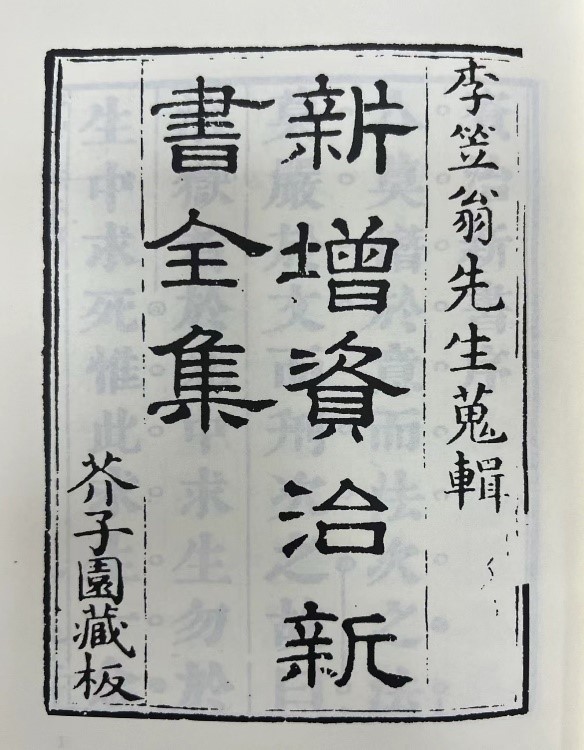 李笠翁先生蒐輯
新增資治新
書全集
芥子園藏板